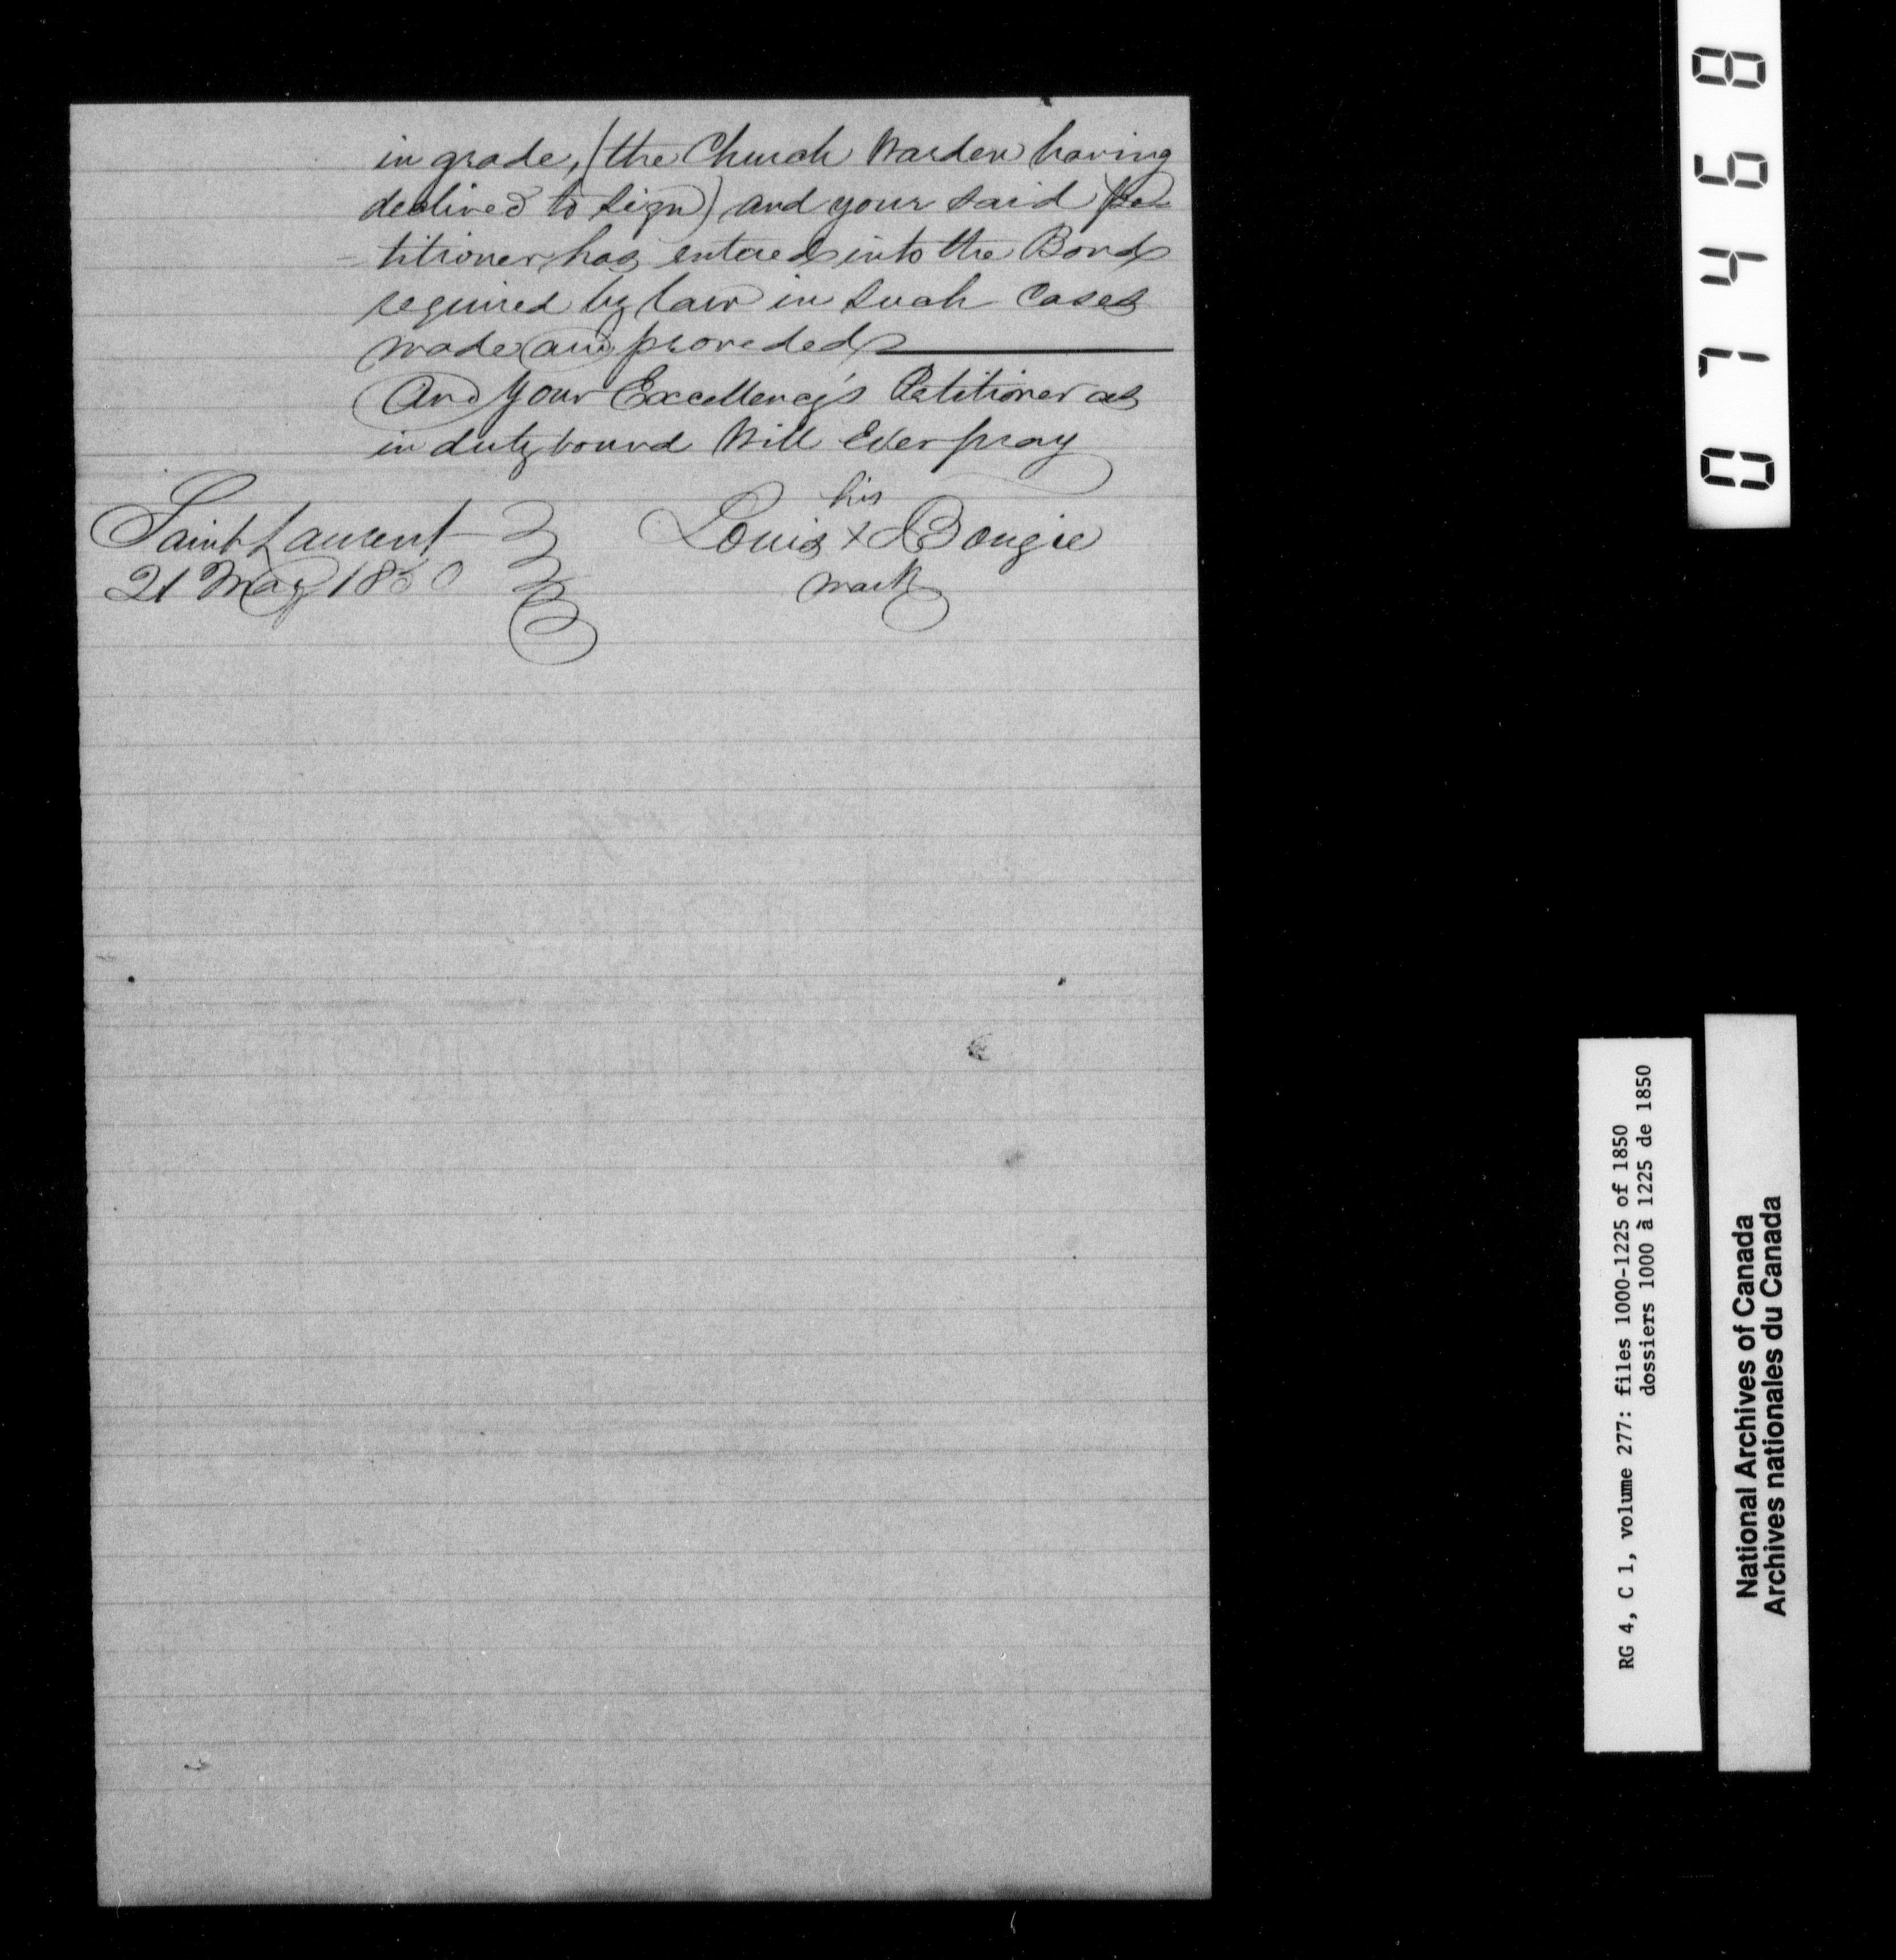 in grade, (the Church Warden having
declined to sign) and your said Pe-
-titioner has entered into the Bond
required by law in such Cases
made and proveded
And Your Excellency's Petitioner as
in duty bound Will Ever pray
Saint Laurent
21 May 1850
his
Louis X Bougie
mark
07468
RG 4, C 1, volume 277: files 1000-1225 of 1850
dossiers 1000 à 1225 de 1850
National Archives of Canada
Archives nationales du Canada